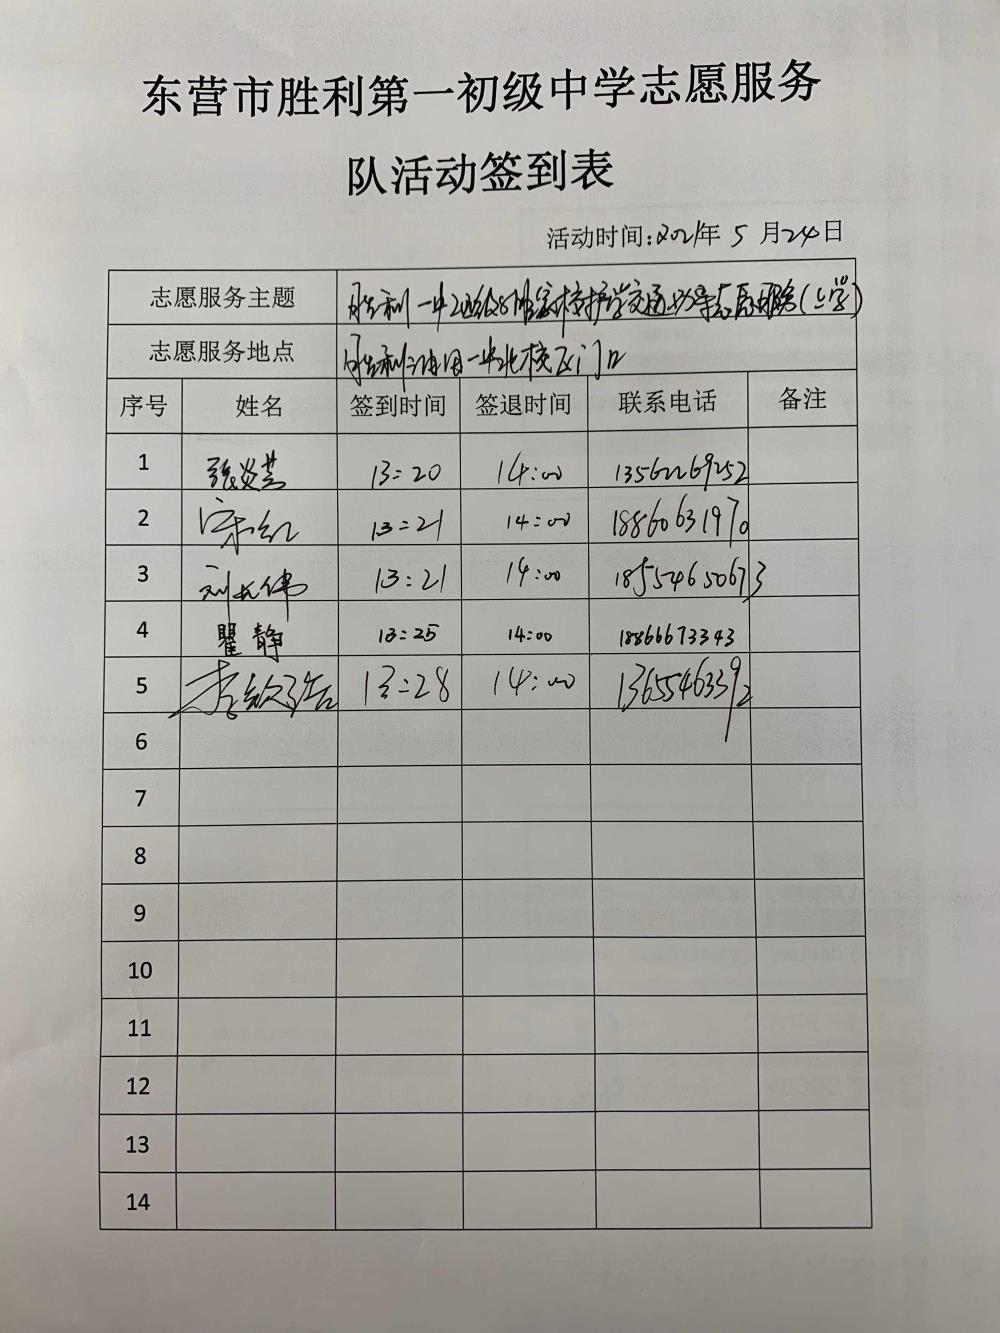 东营市胜利第一初级中学志愿服务
队活动签到表
活动时间:2021年 5 月24日
志愿服务主题 胜利一中 家校护学交通 志愿服务(上学)
志愿服务地点 胜利 一中北校区门口
序号 姓名 签到时间 签退时间 联系电话 备注
1 张炎芸 13:20 14:00 13562269252
2 宋红 13:21 14:00 18860631970
3 刘长伟 13:21 14:00 18554650673
4 瞿静 13:25 14:00 18866673343
5 李 13:28 14:00 13655463392
6
7
8
9
10
11
12
13
14